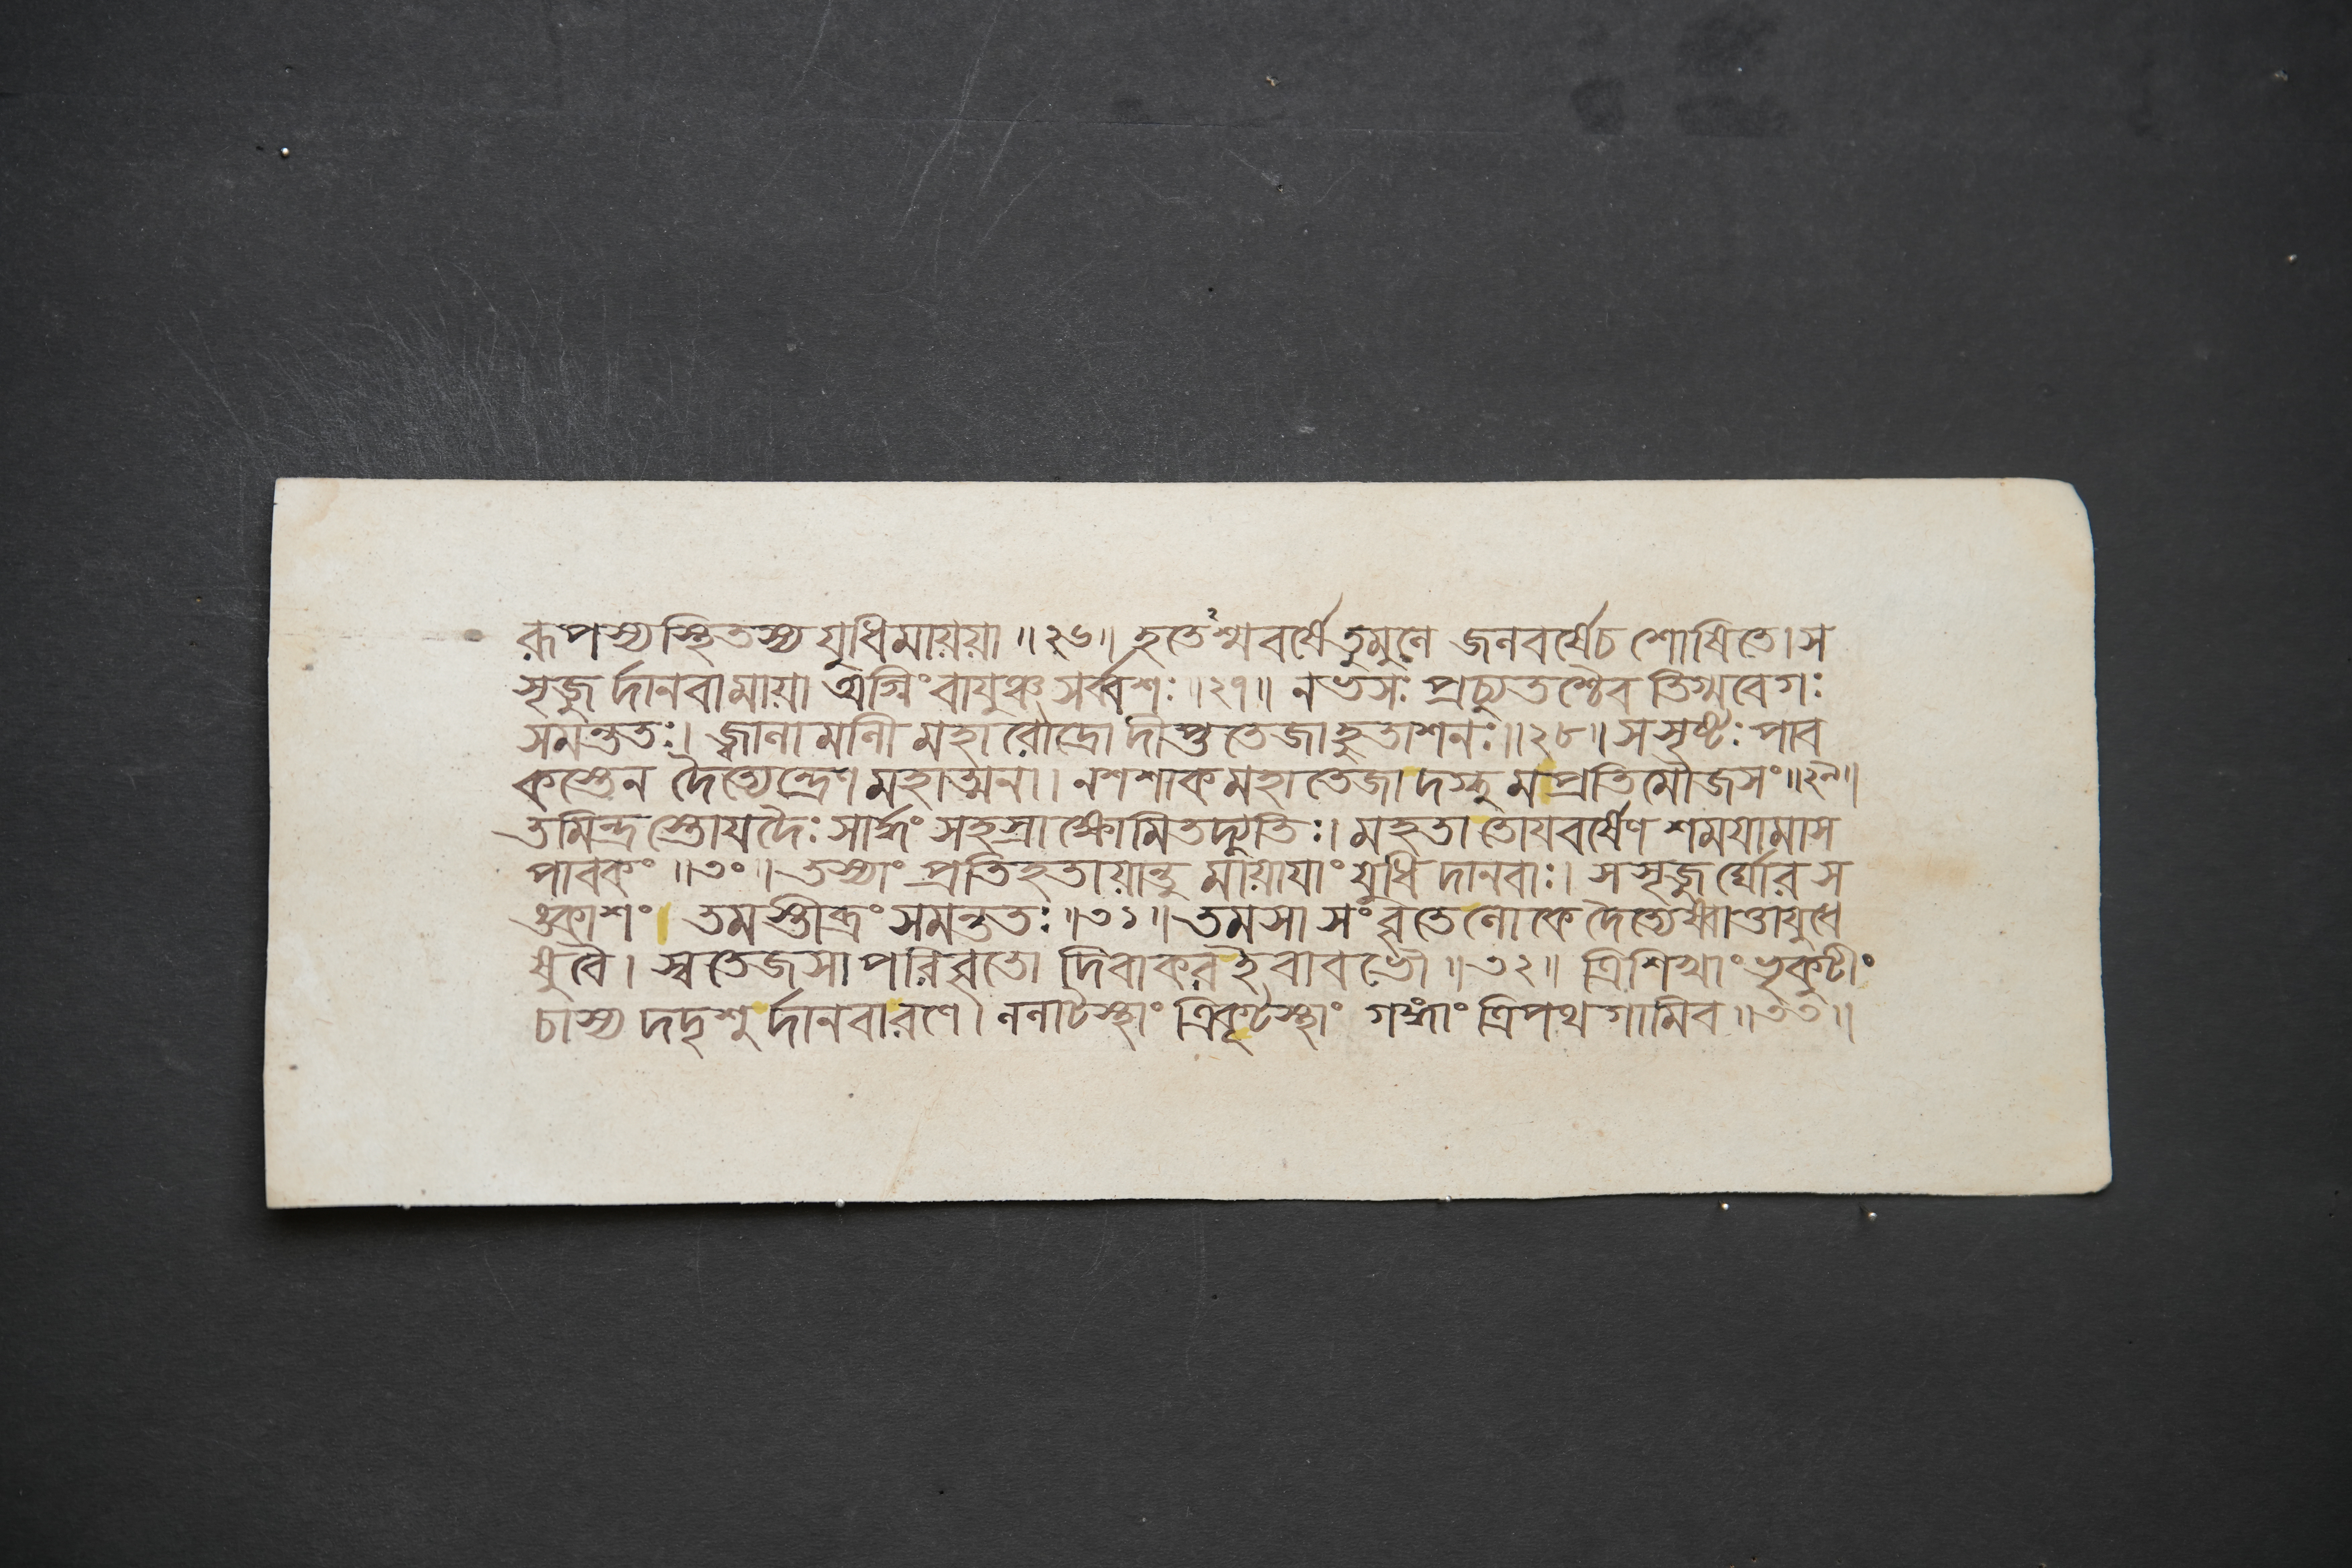 রূপস্য স্থিতস্য যুধি মায়য়া ॥ ২৬ ॥ হতেঽশ্মবর্ষে তুমুলে জলবর্ষে চ শোষিতে । স
সৃজুর্দানবা মায়া অগ্নিং বায়ুঞ্চ সর্ব্বশঃ ॥ ২৭ ॥ নভসঃ প্রচ্যুতশ্চৈব তিগ্মবেগঃ
সমন্ততঃ । জ্বালামালী মহারৌদ্রো দীপ্ততেজা হুতাশনঃ ॥ ২৮ ॥ স সৃষ্টঃ পাব
কস্তেন দৈত্যেন্দ্রেণ মহাত্মনা । ন শশাক মহাতেজা দগ্ধুমপ্রতিমৌজসং ॥ ২৯ ॥
তমিন্দ্রস্তোয়দৈঃ সার্দ্ধং সহস্রাক্ষোমিতদ্যুতিঃ । মহতা তোয়বর্ষেণ শময়ামাস
পাবকং ॥ ৩০ ॥ তস্যাং প্রতিহতায়ান্তু মায়ায়াং যুধি দানবাঃ । সসৃজুর্ঘোরস
ঙ্কাশং । তমস্তীব্রং সমন্ততঃ ॥ ৩১ ॥ তমসা সংবৃতে লোকে দৈত্যেষ্বাত্তায়ুধে
ষু বৈ । স্বতেজসা পরিবৃতো দিবাকর ইবাবভৌ ॥ ৩২ ॥ ত্রিশিখাং ভৃকুটীং
চাস্য দদৃশুর্দানবা রণে । ললাটস্থাং ত্রিকূটস্থাং গঙ্গাং ত্রিপথগামিব ॥ ৩৩ ॥